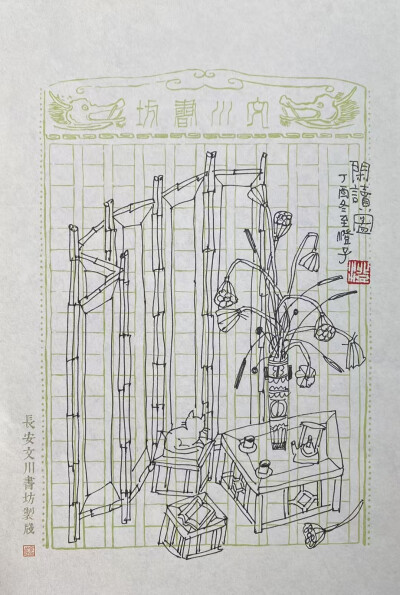 文川書坊
閑讀圖
丁酉冬至橙子
長安文川書坊製牋